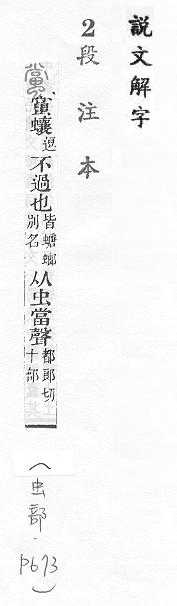 說文解字
2段注本
蠰逗不過也皆螳蜋別名从虫當聲都郎切十部
(虫部.p673)